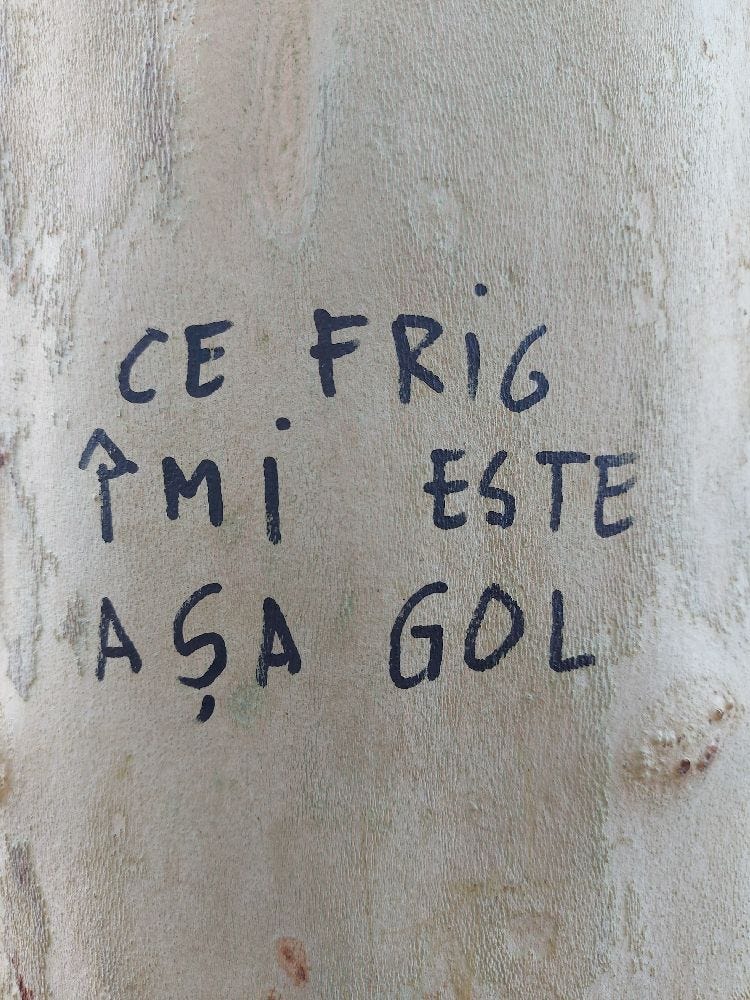 CE FRIG
ÎMI ESTE
AȘA GOL